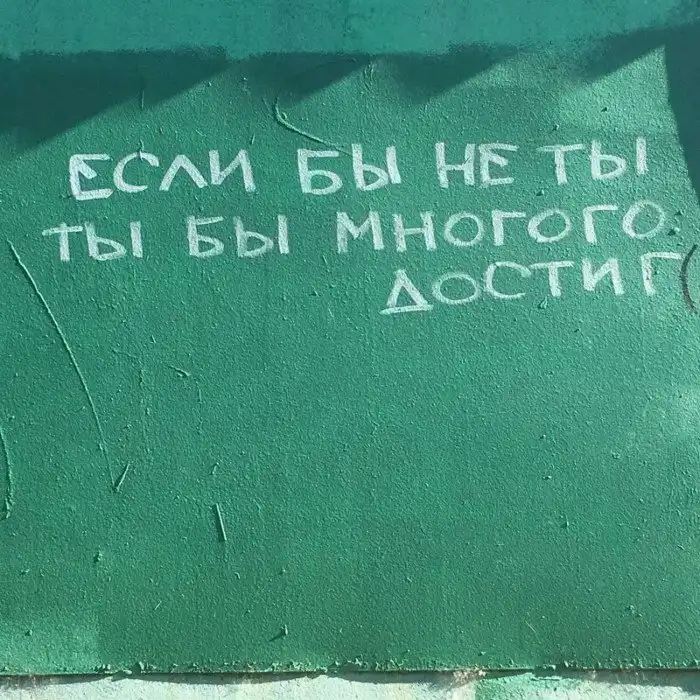 ЕСЛИ БЫ НЕ ТЫ
ТЫ БЫ МНОГОГО
ДОСТИГ